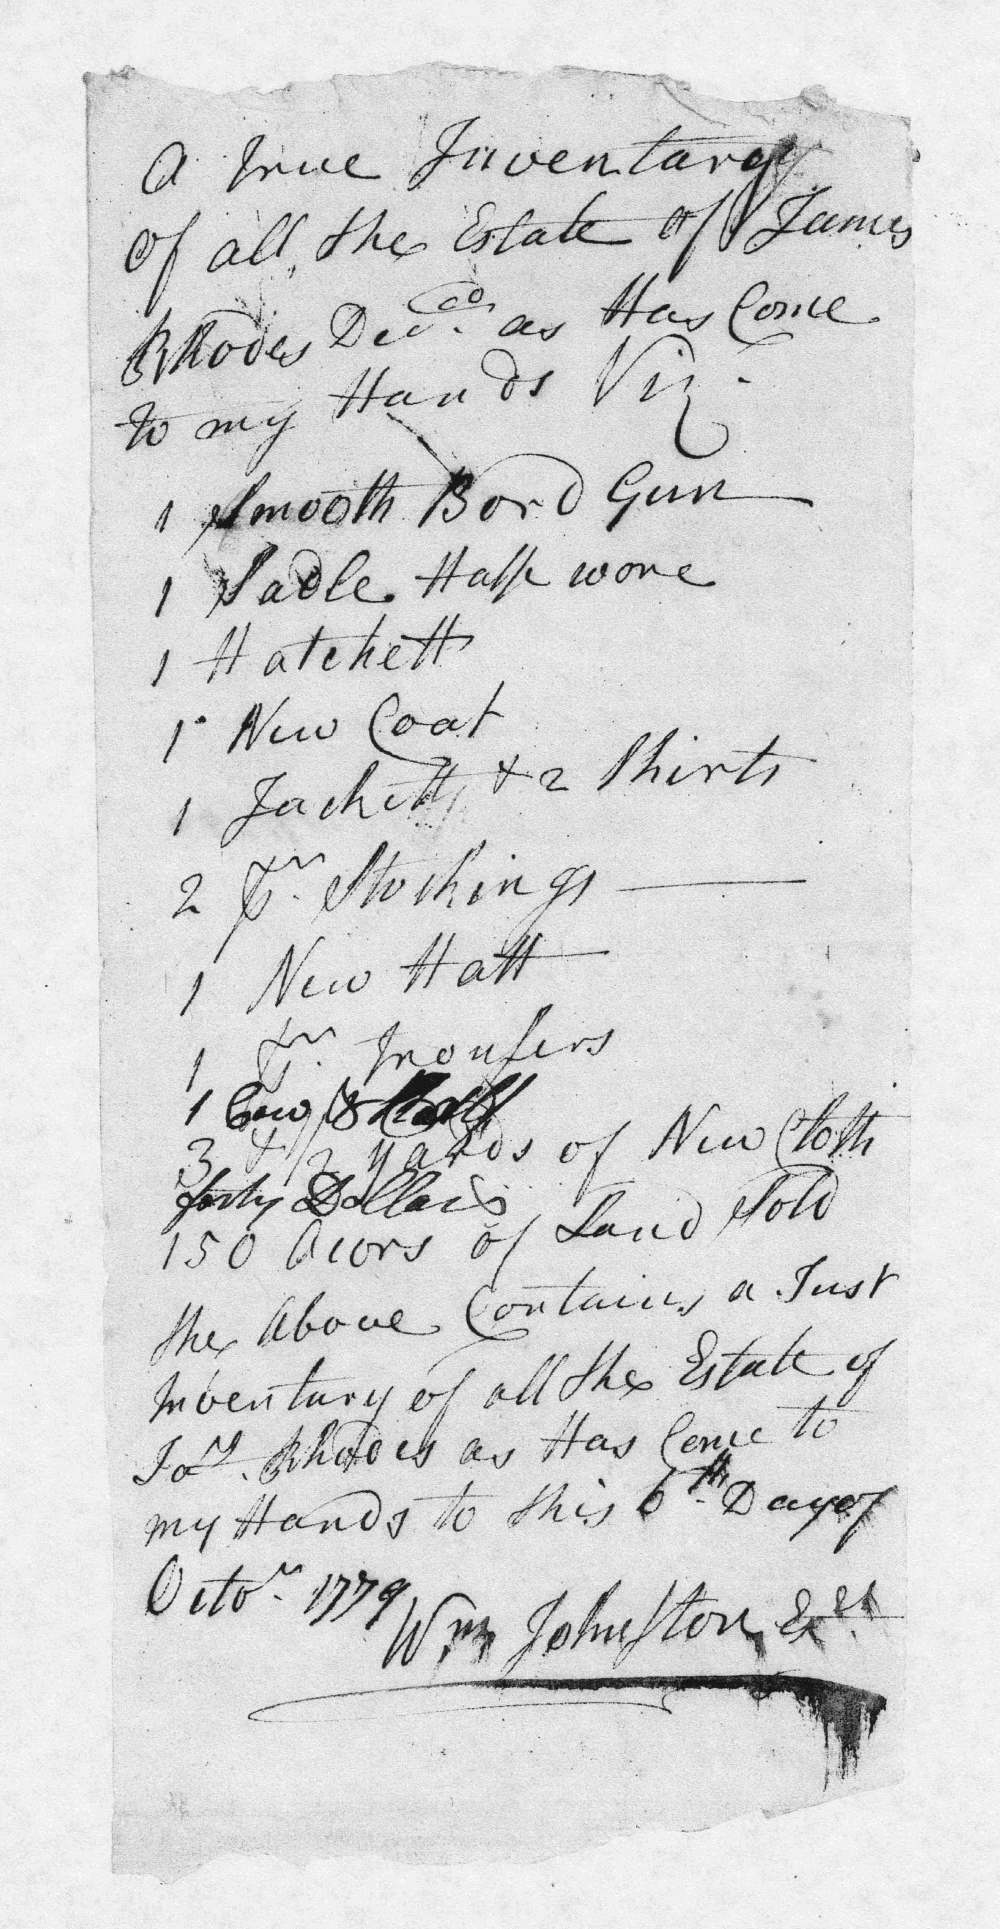 A True Inventarey
of all the Estate of James
Rhodes Decd. as Has Come
to my Hands Viz
1 Smooth Bord Gun
1 Sadle Half wore
1 Hatchett
1 New Coat
1 Jackett & 2 Shirts
2 Pr. Stockings
1 New Hatt
1 Pr. Trousers
1 Cow & Calf
3 1/2 yards of New Cloth
forty Dollars
150 Acors of Land Sold
the Above Contains a Just
Inventury of all the Estate of
Jas. Rhodes as Has Come to
my Hands to this 6th Day of
Octor. 1779
Wm Johnston, Exr.